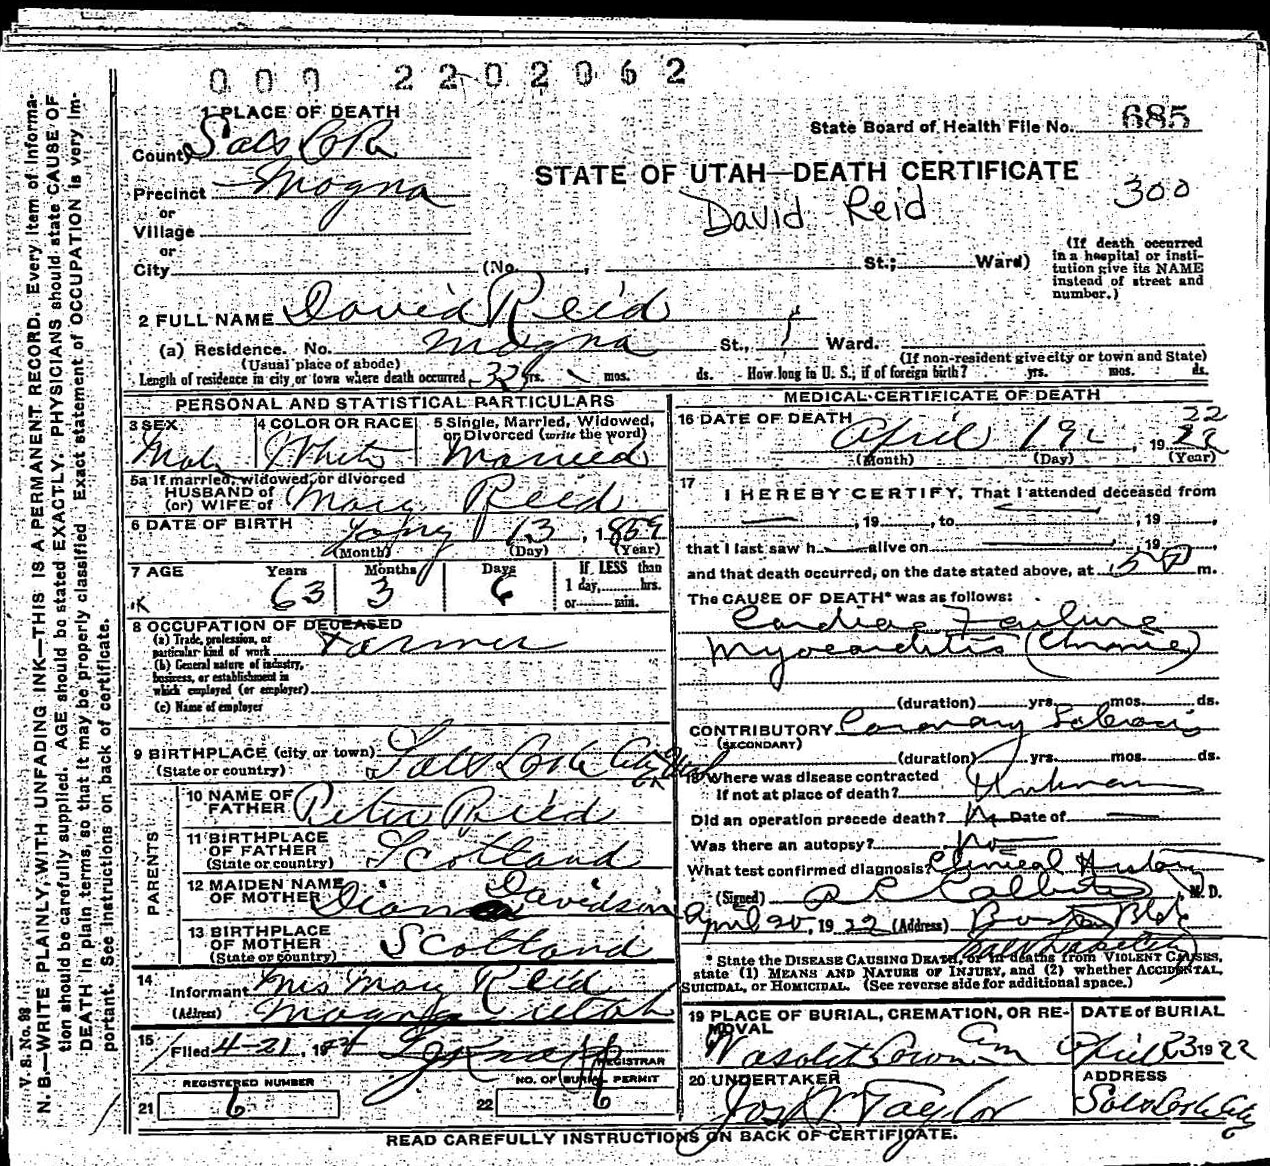 0 0 0 2 2 0 2 0 6 2
1 PLACE OF DEATH
State Board of Health File No. 685
County Salt Lake
STATE OF UTAH—DEATH CERTIFICATE
Precinct Magna
David Reid 300
or
Village
or
City (No. , St.; Ward)
(If death occurred in a hospital or institution give its NAME instead of street and number.)
2 FULL NAME David Reid
(a) Residence. No. Magna St., Ward.
(Usual place of abode) (If non-resident give city or town and State)
Length of residence in city or town where death occurred 33 yrs. mos. ds. How long in U. S., if of foreign birth? yrs. mos. ds.
PERSONAL AND STATISTICAL PARTICULARS
3 SEX Male
4 COLOR OR RACE White
5 Single, Married, Widowed, or Divorced (write the word) Married
5a If married, widowed, or divorced
HUSBAND of
(or) WIFE of Mary Reid
6 DATE OF BIRTH Jany 13, 1859
(Month) (Day) (Year)
7 AGE Years 63 Months 3 Days 6 If LESS than 1 day, hrs. or min.
8 OCCUPATION OF DECEASED
(a) Trade, profession, or particular kind of work Farmer
(b) General nature of industry, business, or establishment in which employed (or employer)
(c) Name of employer
9 BIRTHPLACE (city or town) Salt Lake City Utah
(State or country)
PARENTS
10 NAME OF FATHER Peter Reid
11 BIRTHPLACE OF FATHER Scotland
(State or country)
12 MAIDEN NAME OF MOTHER Davidson
13 BIRTHPLACE OF MOTHER Scotland
(State or country)
14 Informant Mrs Mary Reid
(Address) Magna Utah
15 Filed 4-21, 1922
REGISTRAR
REGISTERED NUMBER
21 6
NO. OF BURIAL PERMIT
22 6
MEDICAL CERTIFICATE OF DEATH
16 DATE OF DEATH April 19, 1922
22
(Month) (Day) (Year)
17
I HEREBY CERTIFY, That I attended deceased from
, 19 , to , 19 ,
that I last saw h alive on , 19 ,
and that death occurred, on the date stated above, at 5 P m.
The CAUSE OF DEATH* was as follows:
Cardiac Failure
Myocarditis (Chronic)
(duration) yrs. mos. ds.
CONTRIBUTORY Coronary Sclerosis
(SECONDARY)
(duration) yrs. mos. ds.
18 Where was disease contracted
If not at place of death? Unknown
Did an operation precede death? No Date of
Was there an autopsy? No
What test confirmed diagnosis? Clinical History
(Signed) M. D.
April 20, 1922 (Address) Boston Bldg
Salt Lake City
* State the DISEASE CAUSING DEATH, or in deaths from VIOLENT CAUSES,
state (1) MEANS AND NATURE OF INJURY, and (2) whether ACCIDENTAL,
SUICIDAL, or HOMICIDAL. (See reverse side for additional space.)
19 PLACE OF BURIAL, CREMATION, OR REMOVAL
Wasatch Lawn Cem
DATE of BURIAL
April 23 1922
20 UNDERTAKER
Jos Wm Taylor
ADDRESS
Salt Lake City
READ CAREFULLY INSTRUCTIONS ON BACK OF CERTIFICATE.
V. S. No. 98
N. B.—WRITE PLAINLY, WITH UNFADING INK—THIS IS A PERMANENT RECORD. Every item of information
should be carefully supplied. AGE should be stated EXACTLY. PHYSICIANS should state CAUSE OF
DEATH in plain terms, so that it may be properly classified. Exact statement of OCCUPATION is very important.
See instructions on back of certificate.